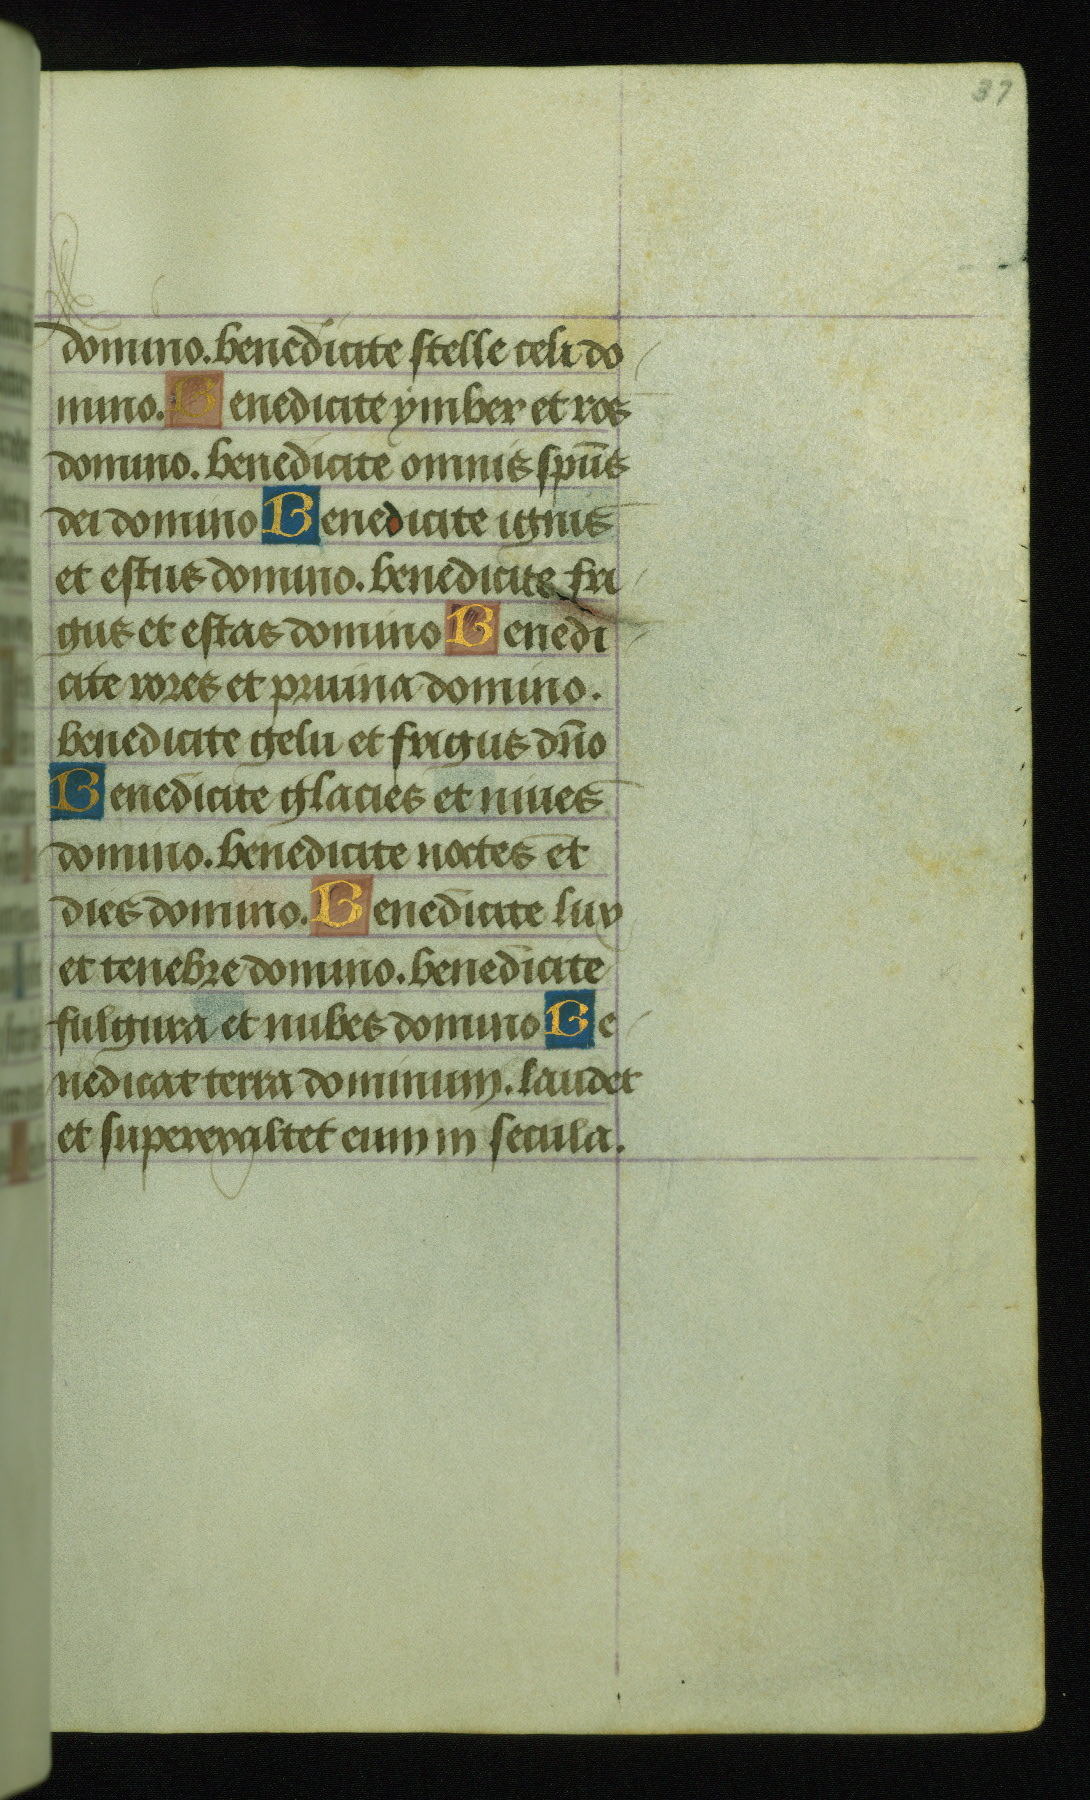 37
domino. benedicite stelle celi do
mino. Benedicite ymber et ros
domino. benedicite omnis spūs
dei domino Benedicite ignis
et estus domino. benedicite fri
gus et estas domino Benedi
cite rores et pruina domino.
benedicite gelu et frigus dño
Benedicite glacies et niues
domino. benedicite noctes et
dies domino. Benedicite lux
et tenebre domino. benedicite
fulgura et nubes domino Be
nedicat terra dominum. laudet
et superexaltet eum in secula.